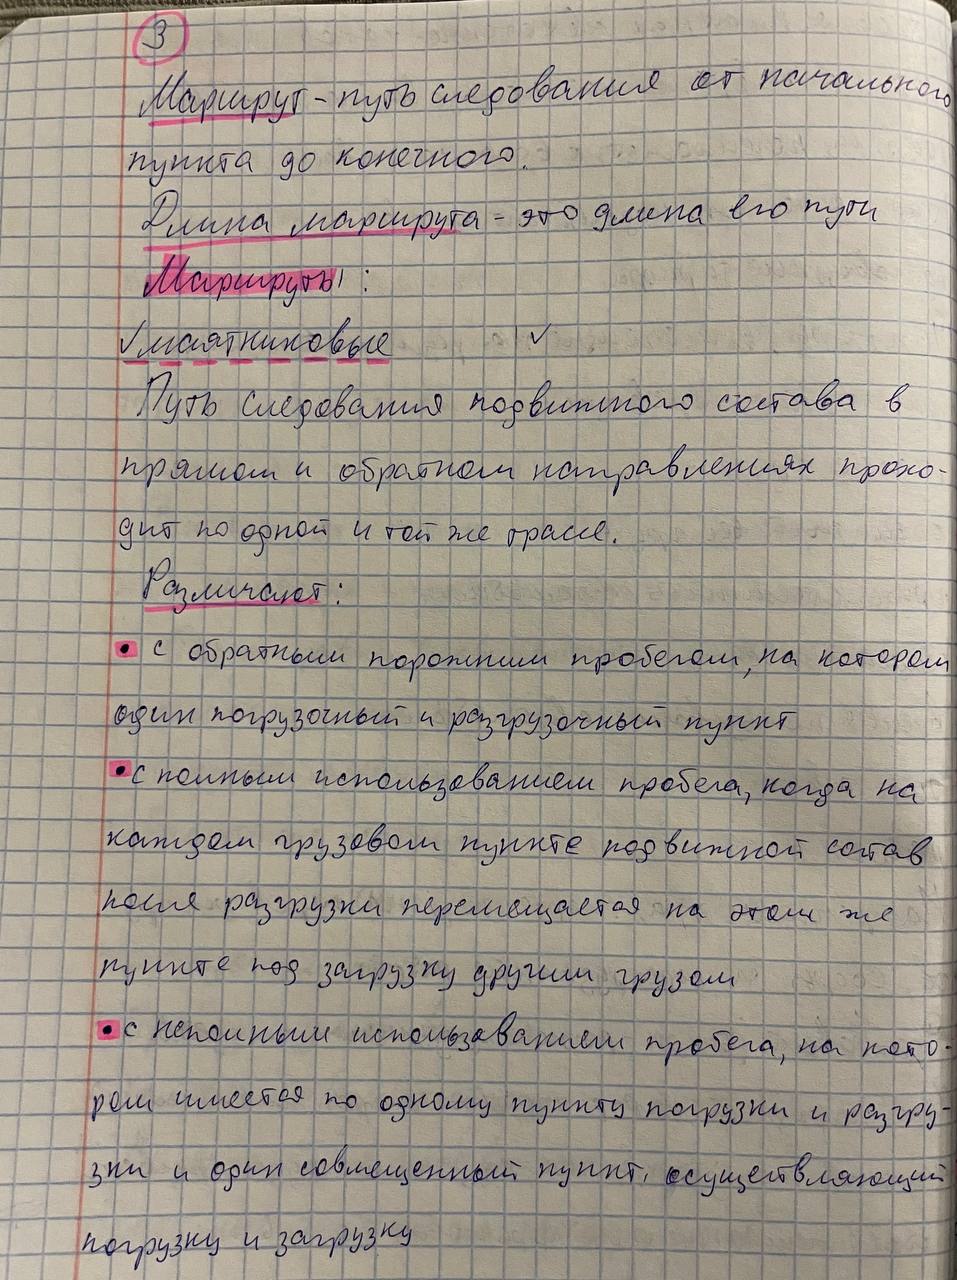 3
Маршрут - путь следования от начального
пункта до конечного.
Длина маршрута - это длина его пути
Маршруты:
✓маятниковые ✓
Путь следования подвижного состава в
прямом и обратном направлениях прохо-
дит по одной и той же трассе.
Различают:
• с обратным порожним пробегом, на котором
один погрузочный и разгрузочный пункт
• с полным использованием пробега, когда на
каждом грузовом пункте подвижной состав
после разгрузки перемещается на этом же
пункте под загрузку другим грузом
• с неполным использованием пробега, на кото-
ром имеется по одному пункту погрузки и разгру-
зки и один совмещенный пункт, осуществляющий
погрузку и загрузку